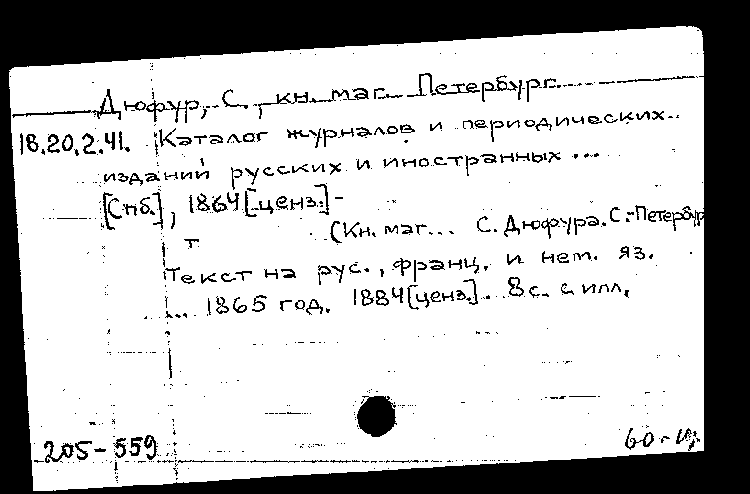 Дюфур, С., кн. маг. Петербург.
18.20.2.41. Каталог журналов и периодических..
изданий русских и иностранных ...
[Спб.], 1864 [ценз.]-
(Кн. маг... С. Дюфура. С.-Петербур
т
Текст на рус., франц. и нем. яз.
... 1865 год. 1884 [ценз.]. 8 с. с илл.
205-559